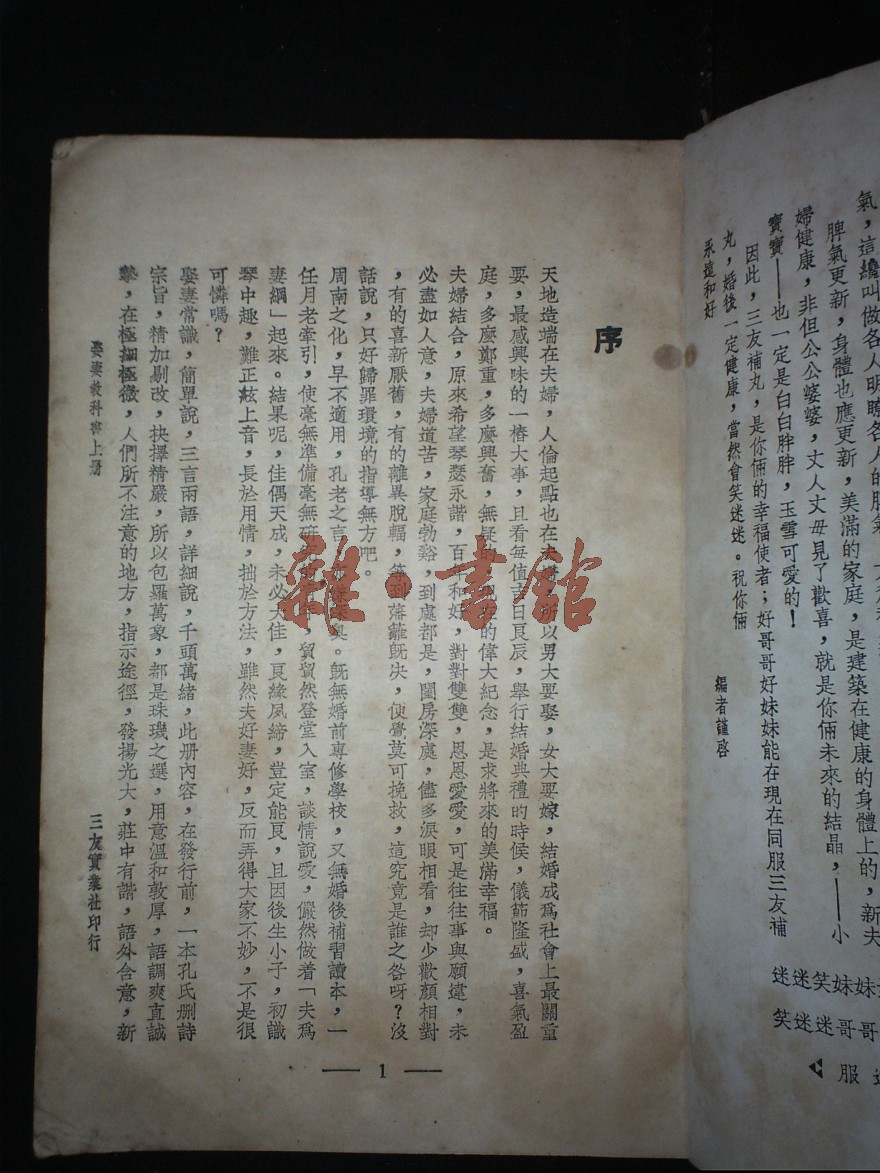 氣，這纔叫做各人明瞭各人的脾氣
脾氣更新，身體也應更新，美滿的家庭，是建築在健康的身體上的，新夫
婦健康，非但公公婆婆，丈人丈母見了歡喜，就是你倆未來的結晶，——小
寶寶——也一定是白白胖胖，玉雪可愛的！
因此，三友補丸，是你倆的幸福使者；好哥哥好妹妹能在現在同服三友補
丸，婚後一定健康，當然會笑迷迷。祝你倆
永遠和好
編者謹啓
迷迷笑妹妹
笑迷迷哥哥
服
序
天地造端在夫婦，人倫起點也在夫婦，所以男大要娶，女大要嫁，結婚成爲社會上最關重
要，最感興味的一樁大事，且看每值吉日良辰，舉行結婚典禮的時候，儀節隆盛，喜氣盈
庭，多麼鄭重，多麼興奮，無疑的現在的偉大紀念，是求將來的美滿幸福。
夫婦結合，原來希望琴瑟永諧，百年和好，對對雙雙，恩恩愛愛，可是往往事與願違，未
必盡如人意，夫婦道苦，家庭勃谿，到處都是，閨房深處，儘多淚眼相看，却少歡顏相對
，有的喜新厭舊，有的離異脫輻，等到藩籬旣决，便覺莫可挽救，這究竟是誰之咎呀？沒
話說，只好歸罪環境的指導無方吧。
周南之化，早不適用，孔老之言，奧。旣無婚前專修學校，又無婚後補習讀本，一
任月老牽引，使毫無準備毫無，貿貿然登堂入室，談情說愛，儼然做着「夫爲
妻綱」起來。結果呢，佳偶天成，未必大佳，良緣夙締，豈定能良，且因後生小子，初識
琴中趣，難正絃上音，長於用情，拙於方法，雖然夫好妻好，反而弄得大家不妙，不是很
可憐嗎？
娶妻常識，簡單說，三言兩語，詳細說，千頭萬緒，此册內容，在發行前，一本孔氏删詩
宗旨，精加剔改，抉擇精嚴，所以包羅萬象，都是珠璣之選，用意溫和敦厚，語調爽直誠
摯，在極細極微，人們所不注意的地方，指示途徑，發揚光大，莊中有諧，語外含意，新
娶妻教科書上册
三友實業社印行
— 1 —
雜·書館